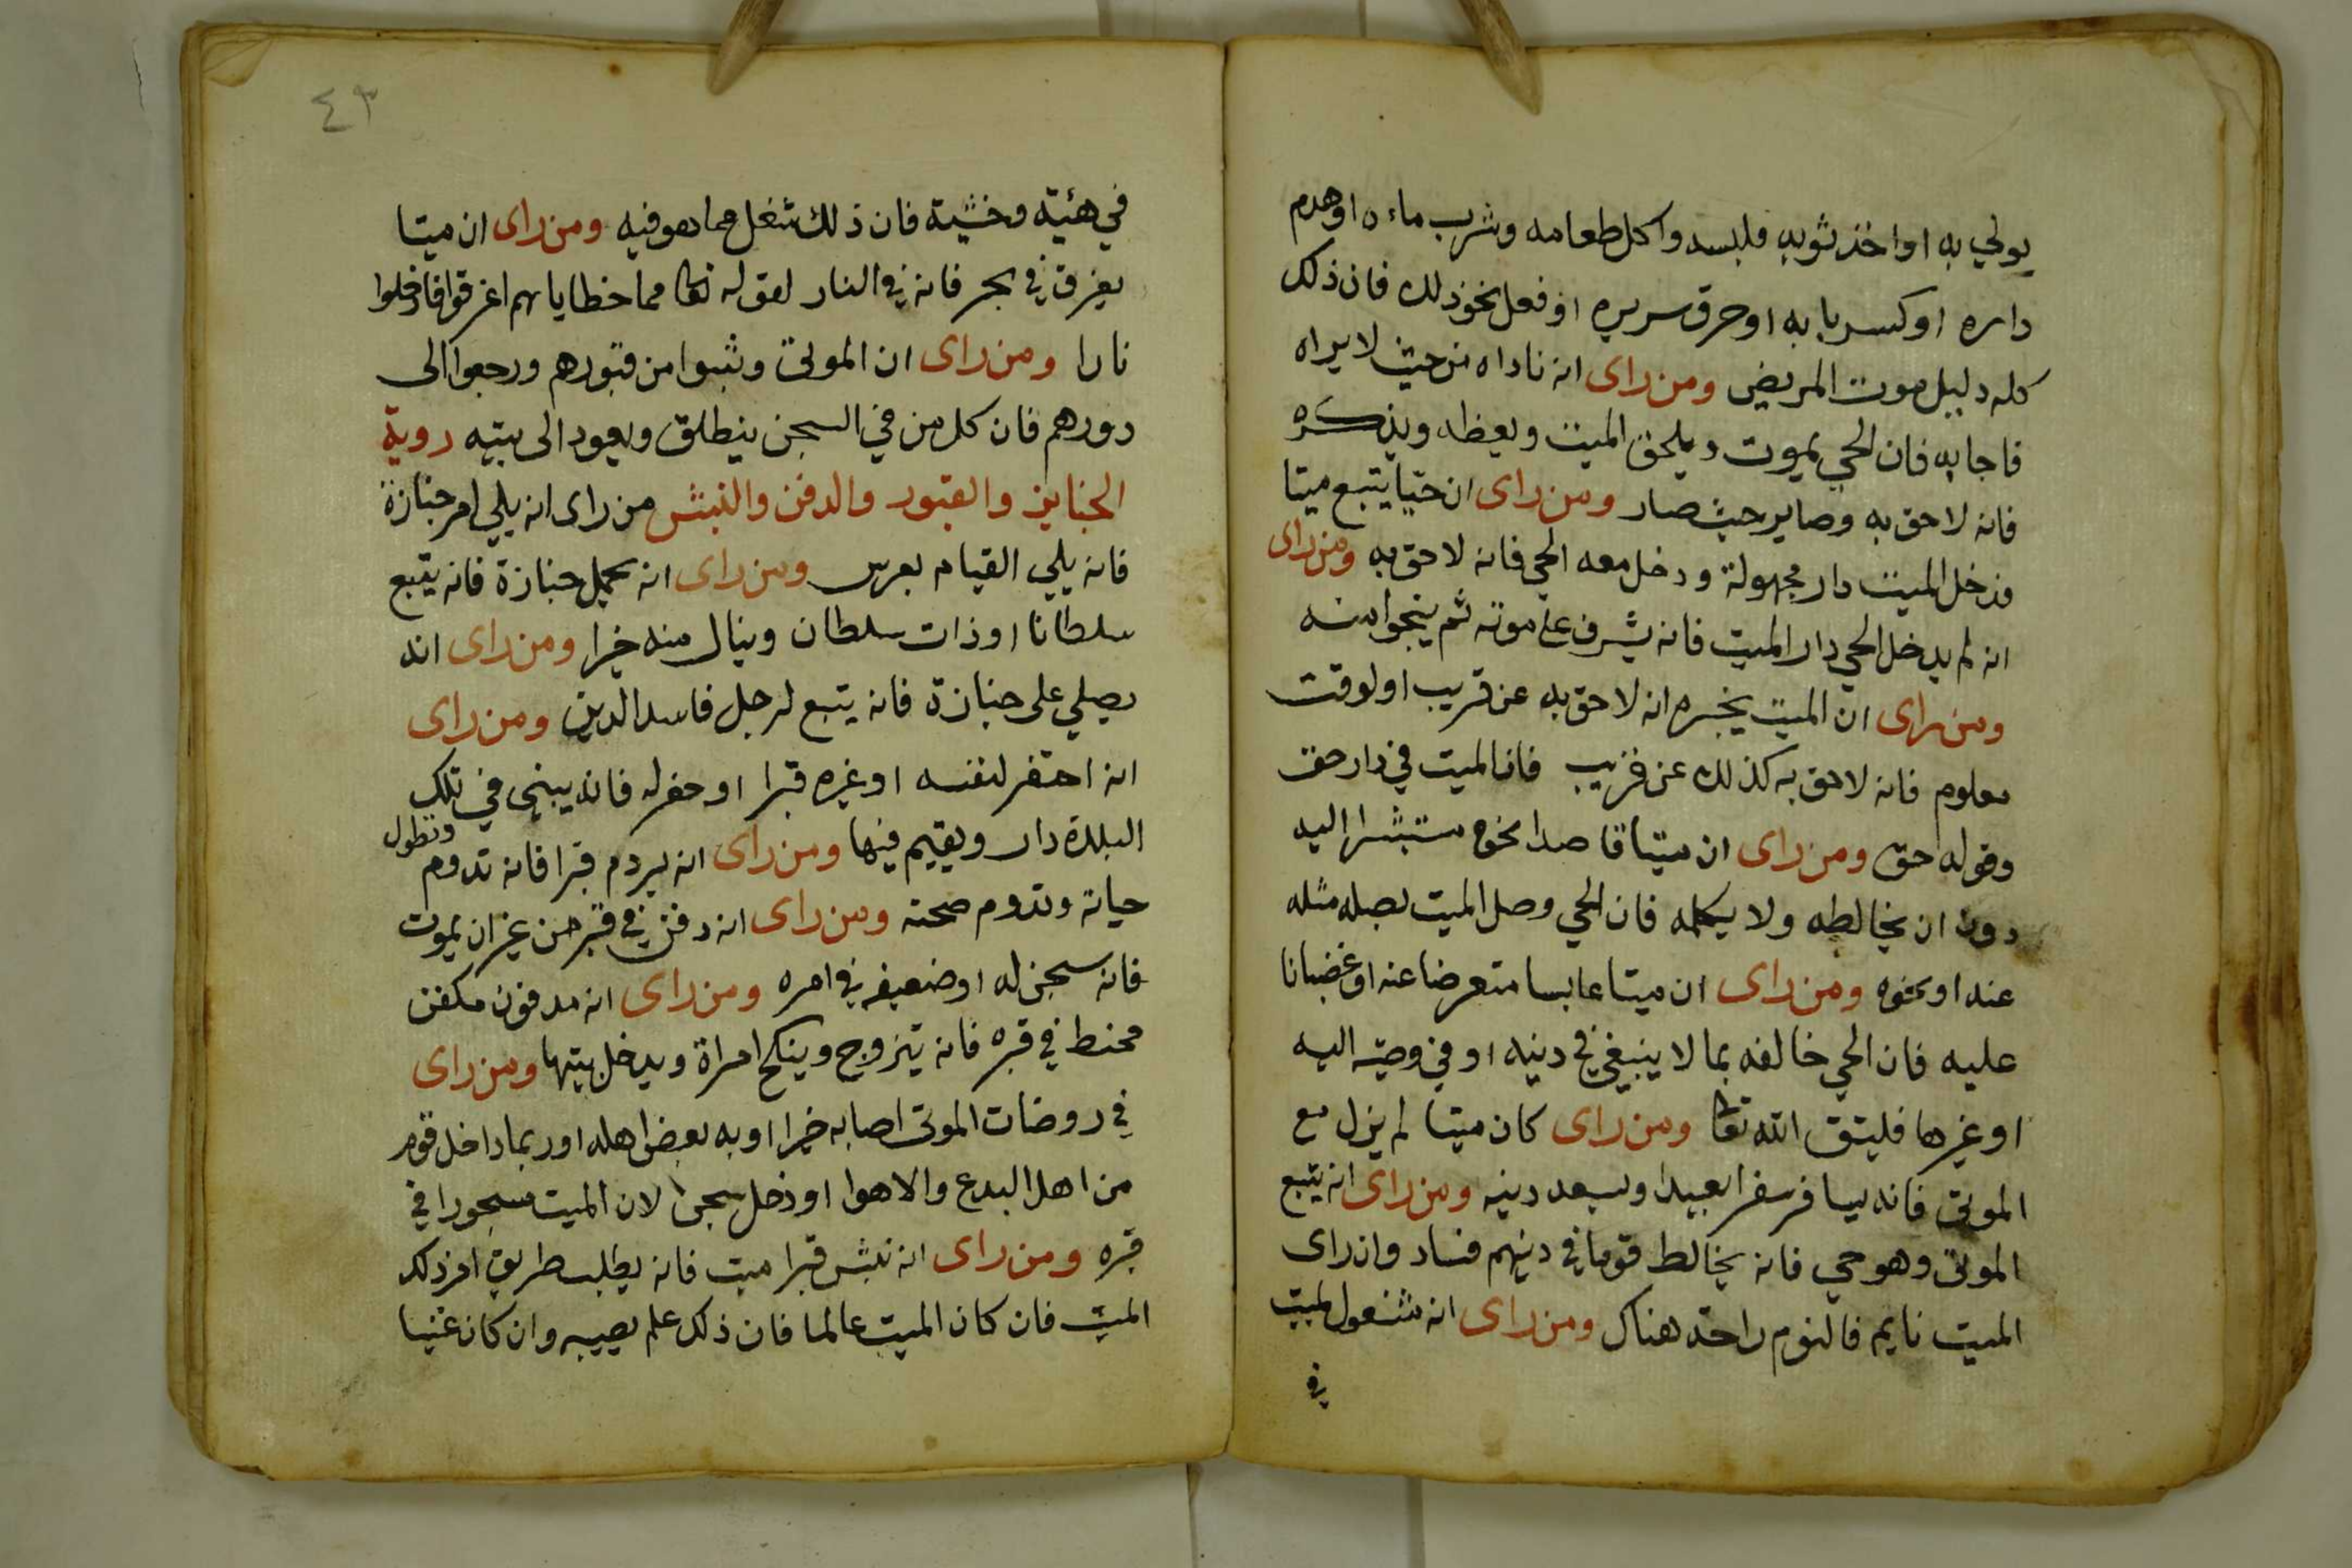 يولي به او اخذ ثوبه فلبسه واكل طعامه وشرب ماءه اوهدم
داره او كسر بابه او حرق سريره او فعل نحو ذلك فان ذلك
كله دليل موت المريض ومن راى انه ناداه من حيث لا يراه
فاجابه فان الحي يموت ويلحق الميت ويعظه ويذكره
فانه لاحق به وصاير حيث صار ومن راى ان حيا يتبع ميتا
فدخل الميت دار مجهولة ودخل معه الحي فانه لاحق به ومن راى
انه لم يدخل الحي دار الميت فانه يشرف على موته ثم ينجوا منه
ومن راى ان الميت يخبره انه لاحق به عن قريب او لوقت
معلوم فانه لاحق به كذلك عن قريب فان الميت في دار حق
وقوله حق ومن راى ان ميتا قاصدا نحوه مستبشرا اليه
دون ان يخالطه ولا يكلمه فان الحي وصل الميت بصله مثله
عنه او نحوه ومن راى ان ميتا عابسا متعرضا عنه او غضبانا
عليه فان الحي خالفه بما لا ينبغي في دينه او في وصيته اليه
او غيرها فليتق الله تعا ومن راى كان ميتا لم يزل مع
الموتى فانه يسافر سفرا بعيدا ويسعد دينه ومن راى انه يتبع
الموتى وهو حي فانه يخالط قوما في دينهم فساد وان راى
الميت نايم فالنوم راحته هناك ومن راى انه مشغول الميت
في
٤٣
في هئية وخشية فان ذلك شغل مما هو فيه ومن راى ان ميتا
يغرق في بحر فانه في النار لقوله تعا مما خطاياهم اغرقوا فادخلوا
نارا ومن راى ان الموتى وثبوا من قبورهم ورجعوا الى
دورهم فان كل من في السجن ينطلق ويعود الى بيته روية
الجنايز والقبور والدفن والنبش من راى انه يلي امر جنازة
فانه يلي القيام بعرس ومن راى انه يحمل جنازة فانه يتبع
سلطانا او ذات سلطان وينال منه خيرا ومن راى انه
يصلي على جنازة فانه يتبع لرجل فاسد الدين ومن راى
انه احتفر لنفسه او غيره قبرا او حفر له فانه يبنى في تلك
البلدة دار ويقيم فيها ومن راى انه يردم قبرا فانه تدوم وتطول
حياته وتدوم صحته ومن راى انه دفن في قبر من غير ان يموت
فانه سجن له او ضعيفه في امره ومن راى انه مدفون مكفن
محنط في قبره فانه يتزوج وينكح امراة ويدخل بيتها ومن راى
في روضات الموتى اصابه خيرا او به بعض اهله او ربما داخل قوم
من اهل البدع والاهوا او دخل سجن لان الميت مسجورا في
قبره ومن راى انه نبش قبرا ميت فانه يطلب طريق اخر ذلك
الميت فان كان الميت عالما فان ذلك علم يصيبه وان كان غنيا